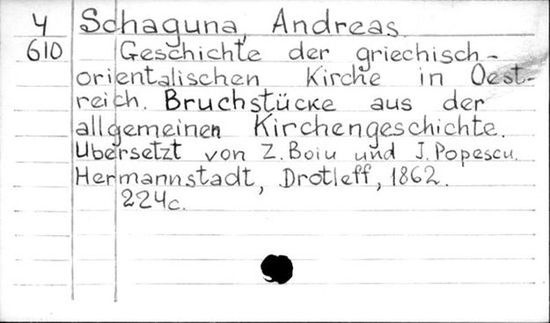 4 Schaguna, Andreas.
610 Geschichte der griechisch-
orientalischen Kirche in Oest-
reich. Bruchstücke aus der
allgemeinen Kirchengeschichte.
Übersetzt von Z. Boiu und J. Popescu.
Hermannstadt, Drotleff, 1862.
224c.